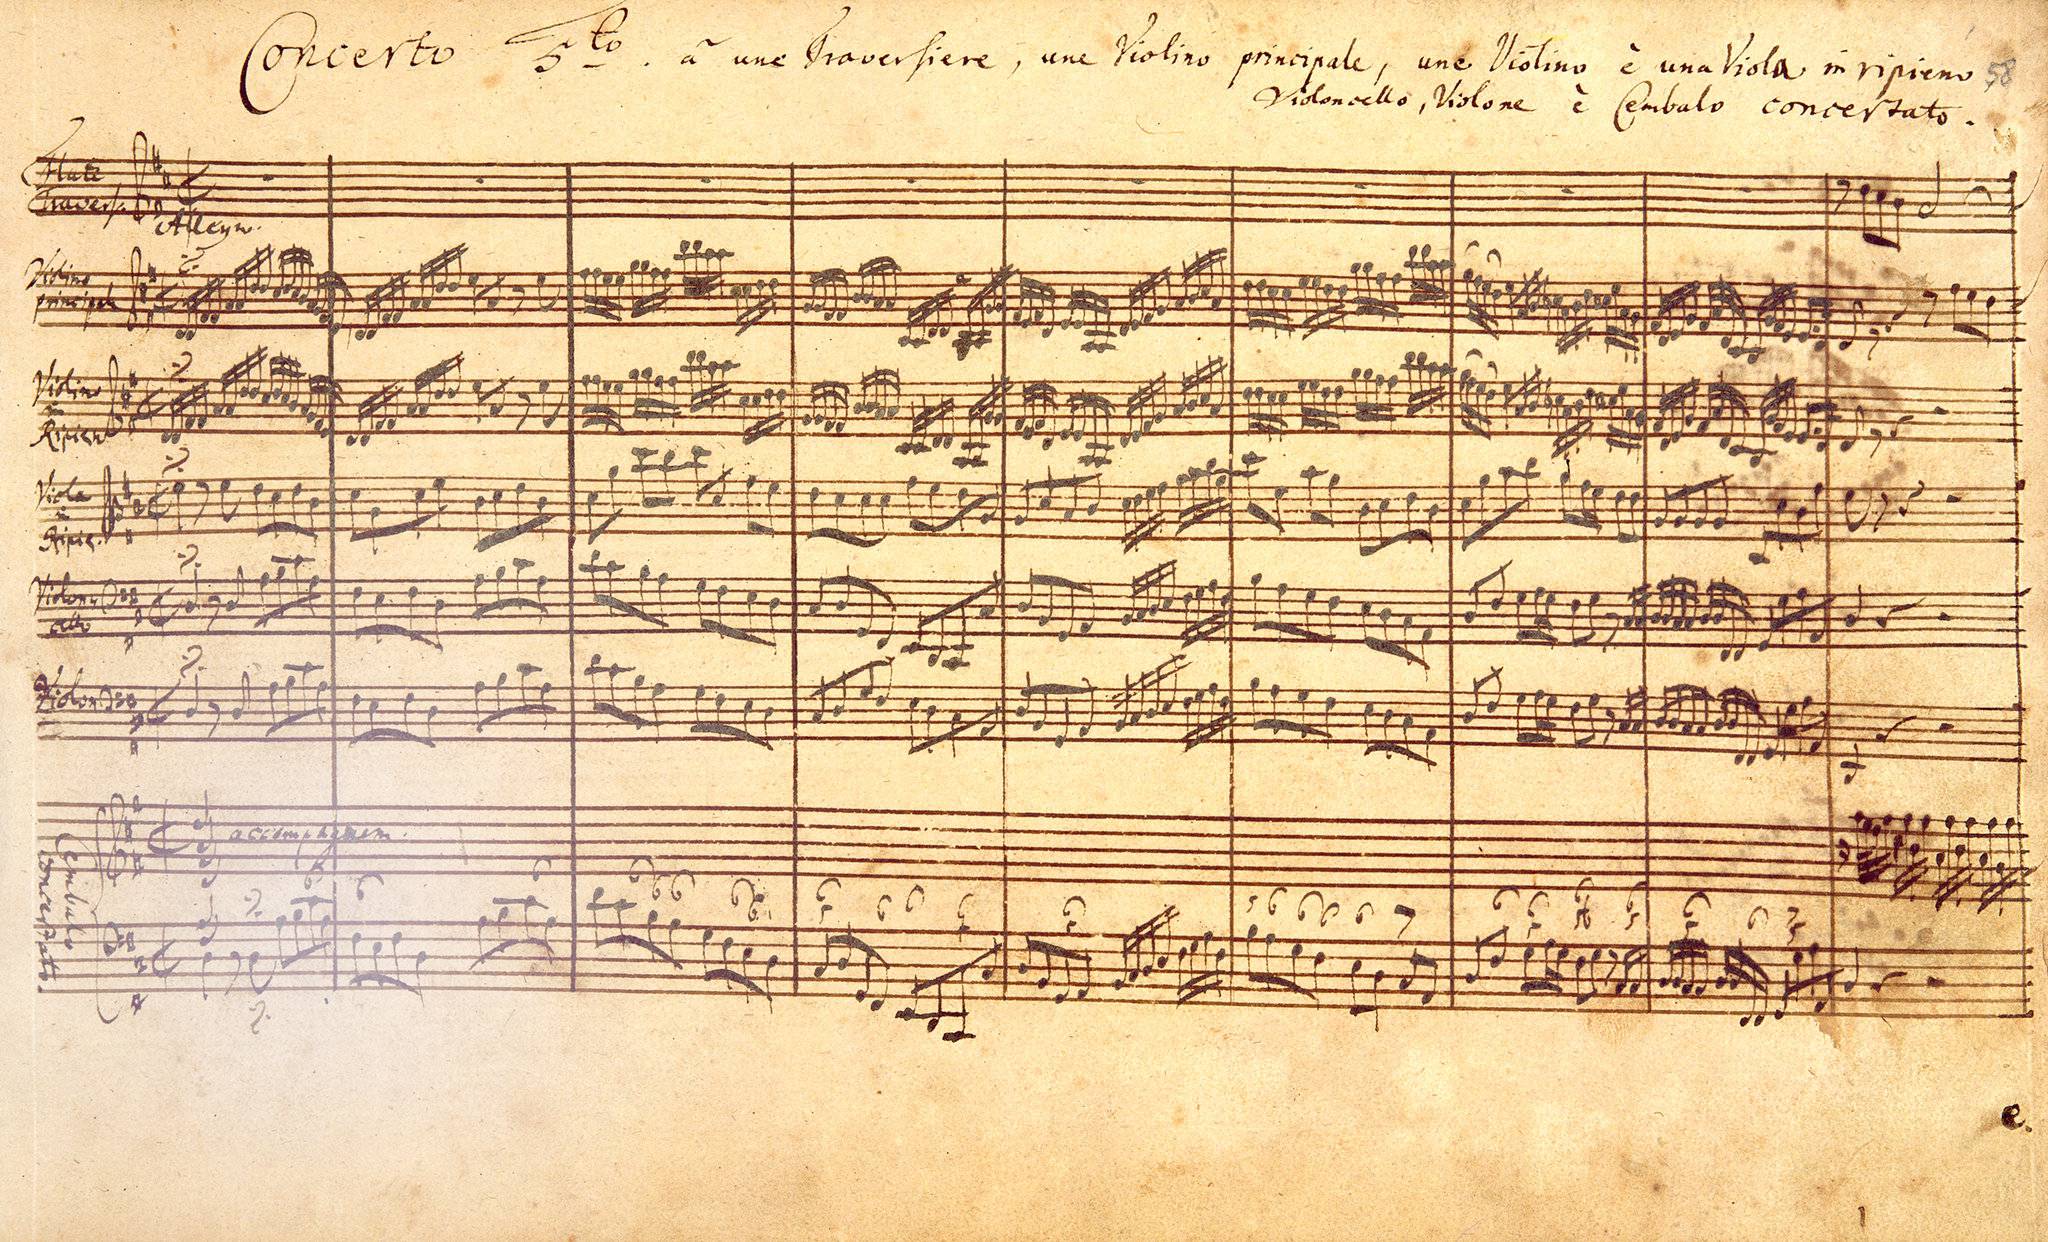 Concerto 5to. â une Traversiere, une Violino principale, une Violino è una Viola in ripieno 58
Violoncello, Violone è Cembalo concertato.
Flute
Travers.
Allegro.
Violino
principale
Violino
Ripien
Viola
Ripien.
Violon
cello
Violon
accompagnem.
Cembalo
concertato.